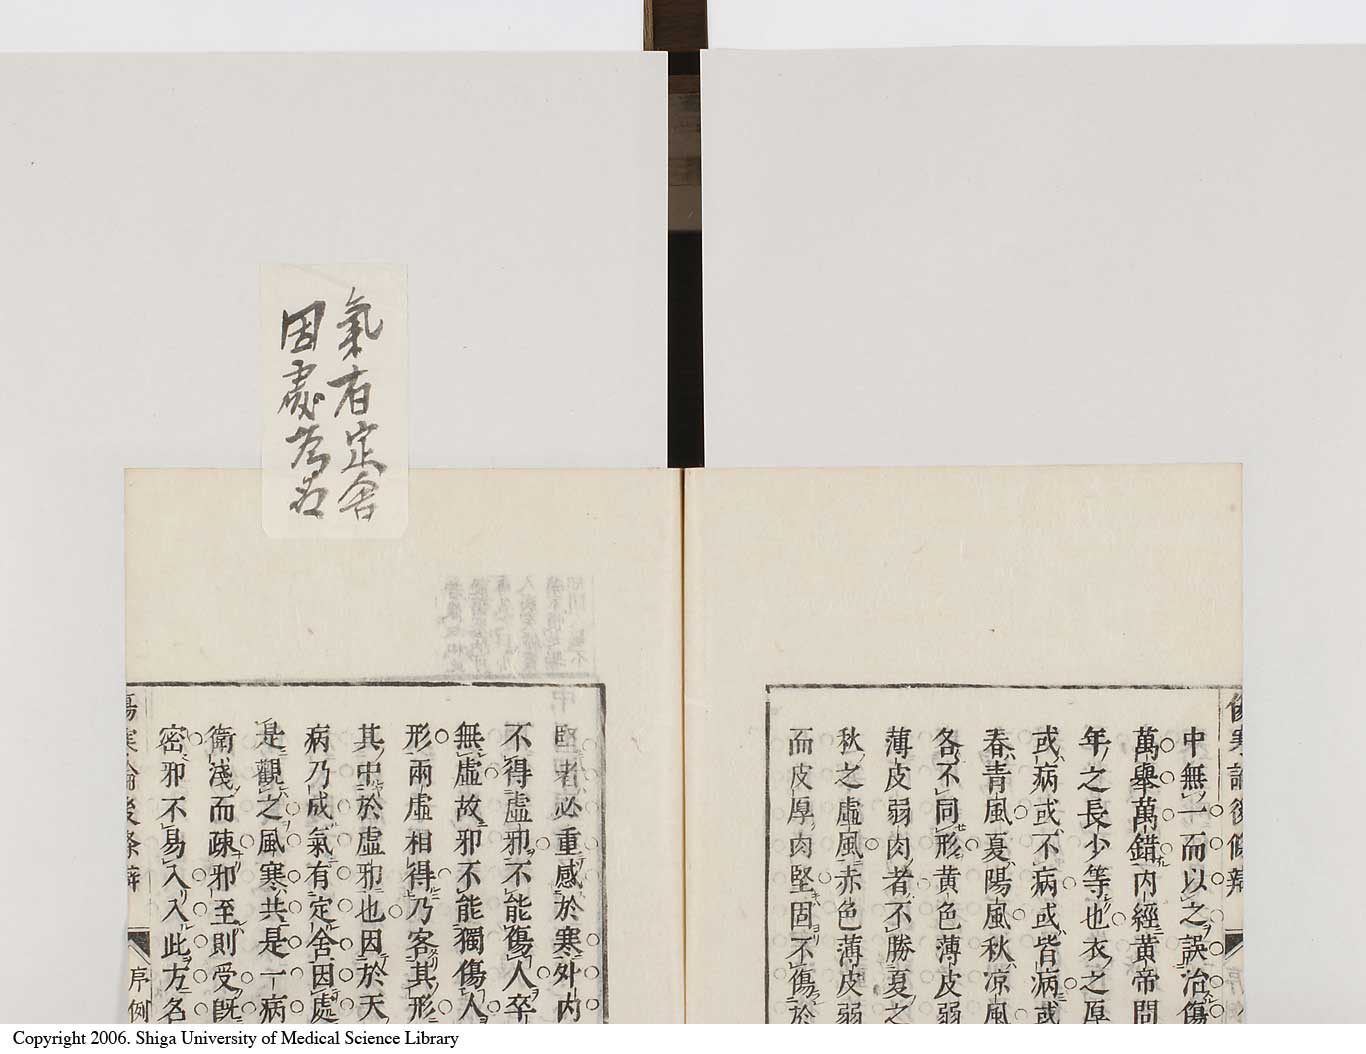 氣有定舍
因處為名
中無一而以之誤治傷
萬舉萬錯内經黄帝問
年之長少等也衣之厚
或病或不病或皆病或
春青風夏陽風秋凉風
各不同形黄色薄皮弱
薄皮弱肉者不勝夏之
秋之虚風赤色薄皮弱
而皮厚肉堅固不傷於
堅者必重感於寒外内
不得虚邪不能傷人卒
無虚故邪不能獨傷人
形兩虚相得乃客其形
其中於虚邪也因於天
病乃成氣有定舍因處
是觀之風寒共是一病
衛淺而疎邪至則受既
密邪不易入入此方名
傷寒論後條辨
序例
Copyright 2006. Shiga University of Medical Science Library